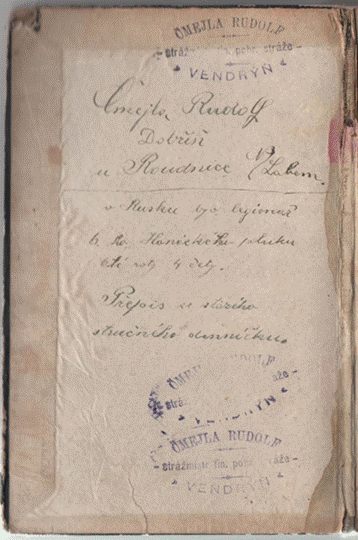 ČMEJLA RUDOLF
– strážmistr fin. pohr. stráže –
VENDRYN
Čmejla Rudolf
Dobříň
u Roudnice N/Labem.
v Rusku byv legionář
6. ho Hanického pluku
roty 4 čety.
Přepis z starého
stručního denníčku.
ČMEJLA RUDOLF
stráž
VENDRYN
ČMEJLA RUDOLF
– strážmistr fin. pohr. stráže –
VENDRYN